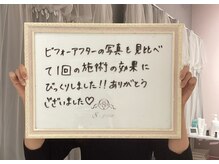 ビフォーアフターの写真を見比べ
て1回の施術の効果に
びっくりしました!!ありがとう
ございました♡